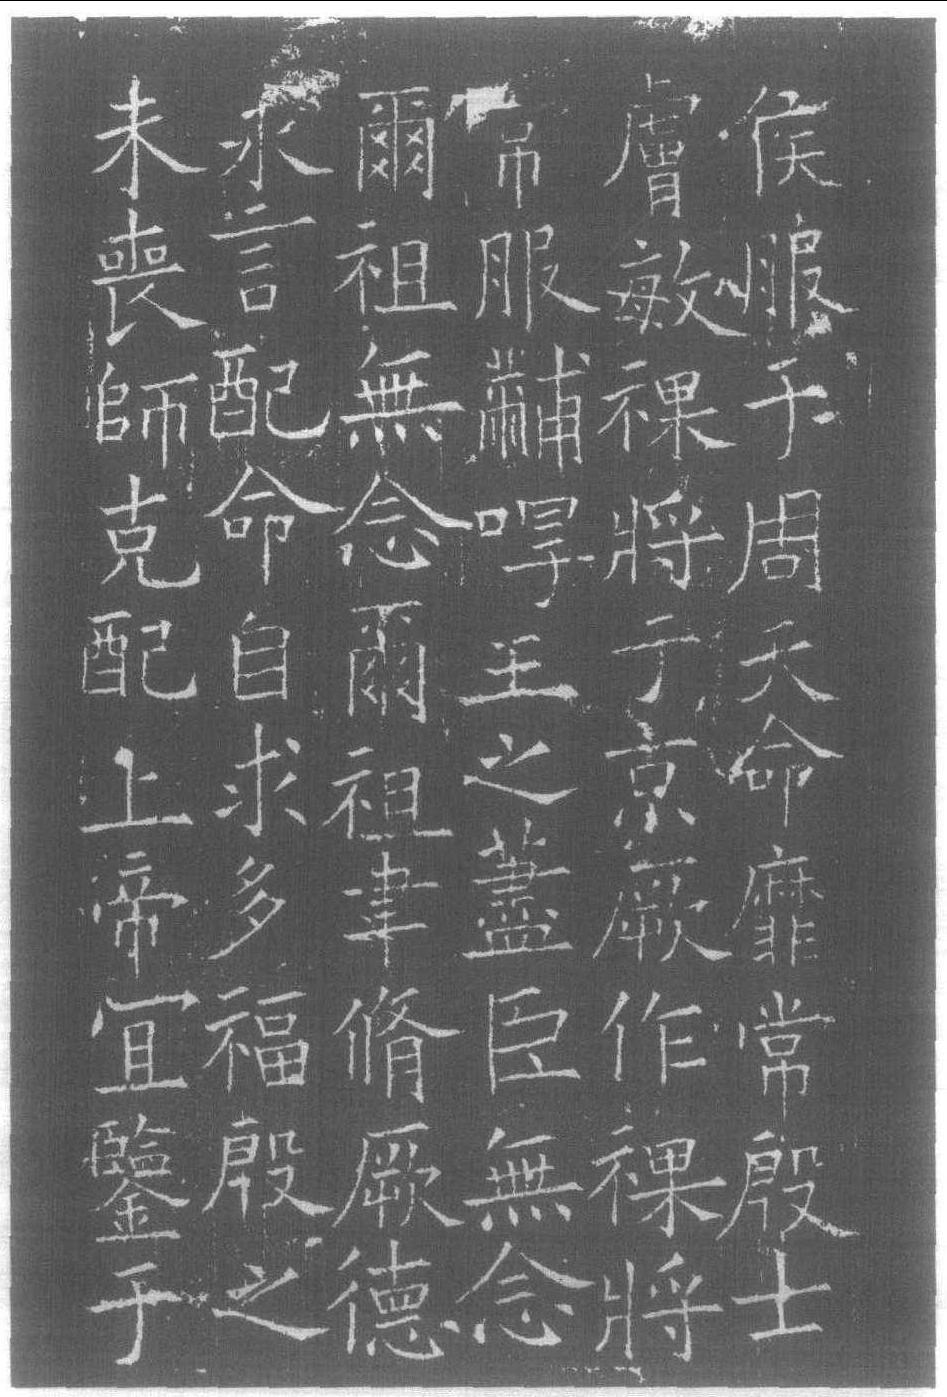 侯服于周天命靡常殷士
膚敏祼將于京厥作祼將
常服黼冔王之藎臣無念
爾祖無念爾祖聿脩厥德
永言配命自求多福殷之
未喪師克配上帝宜鑒于